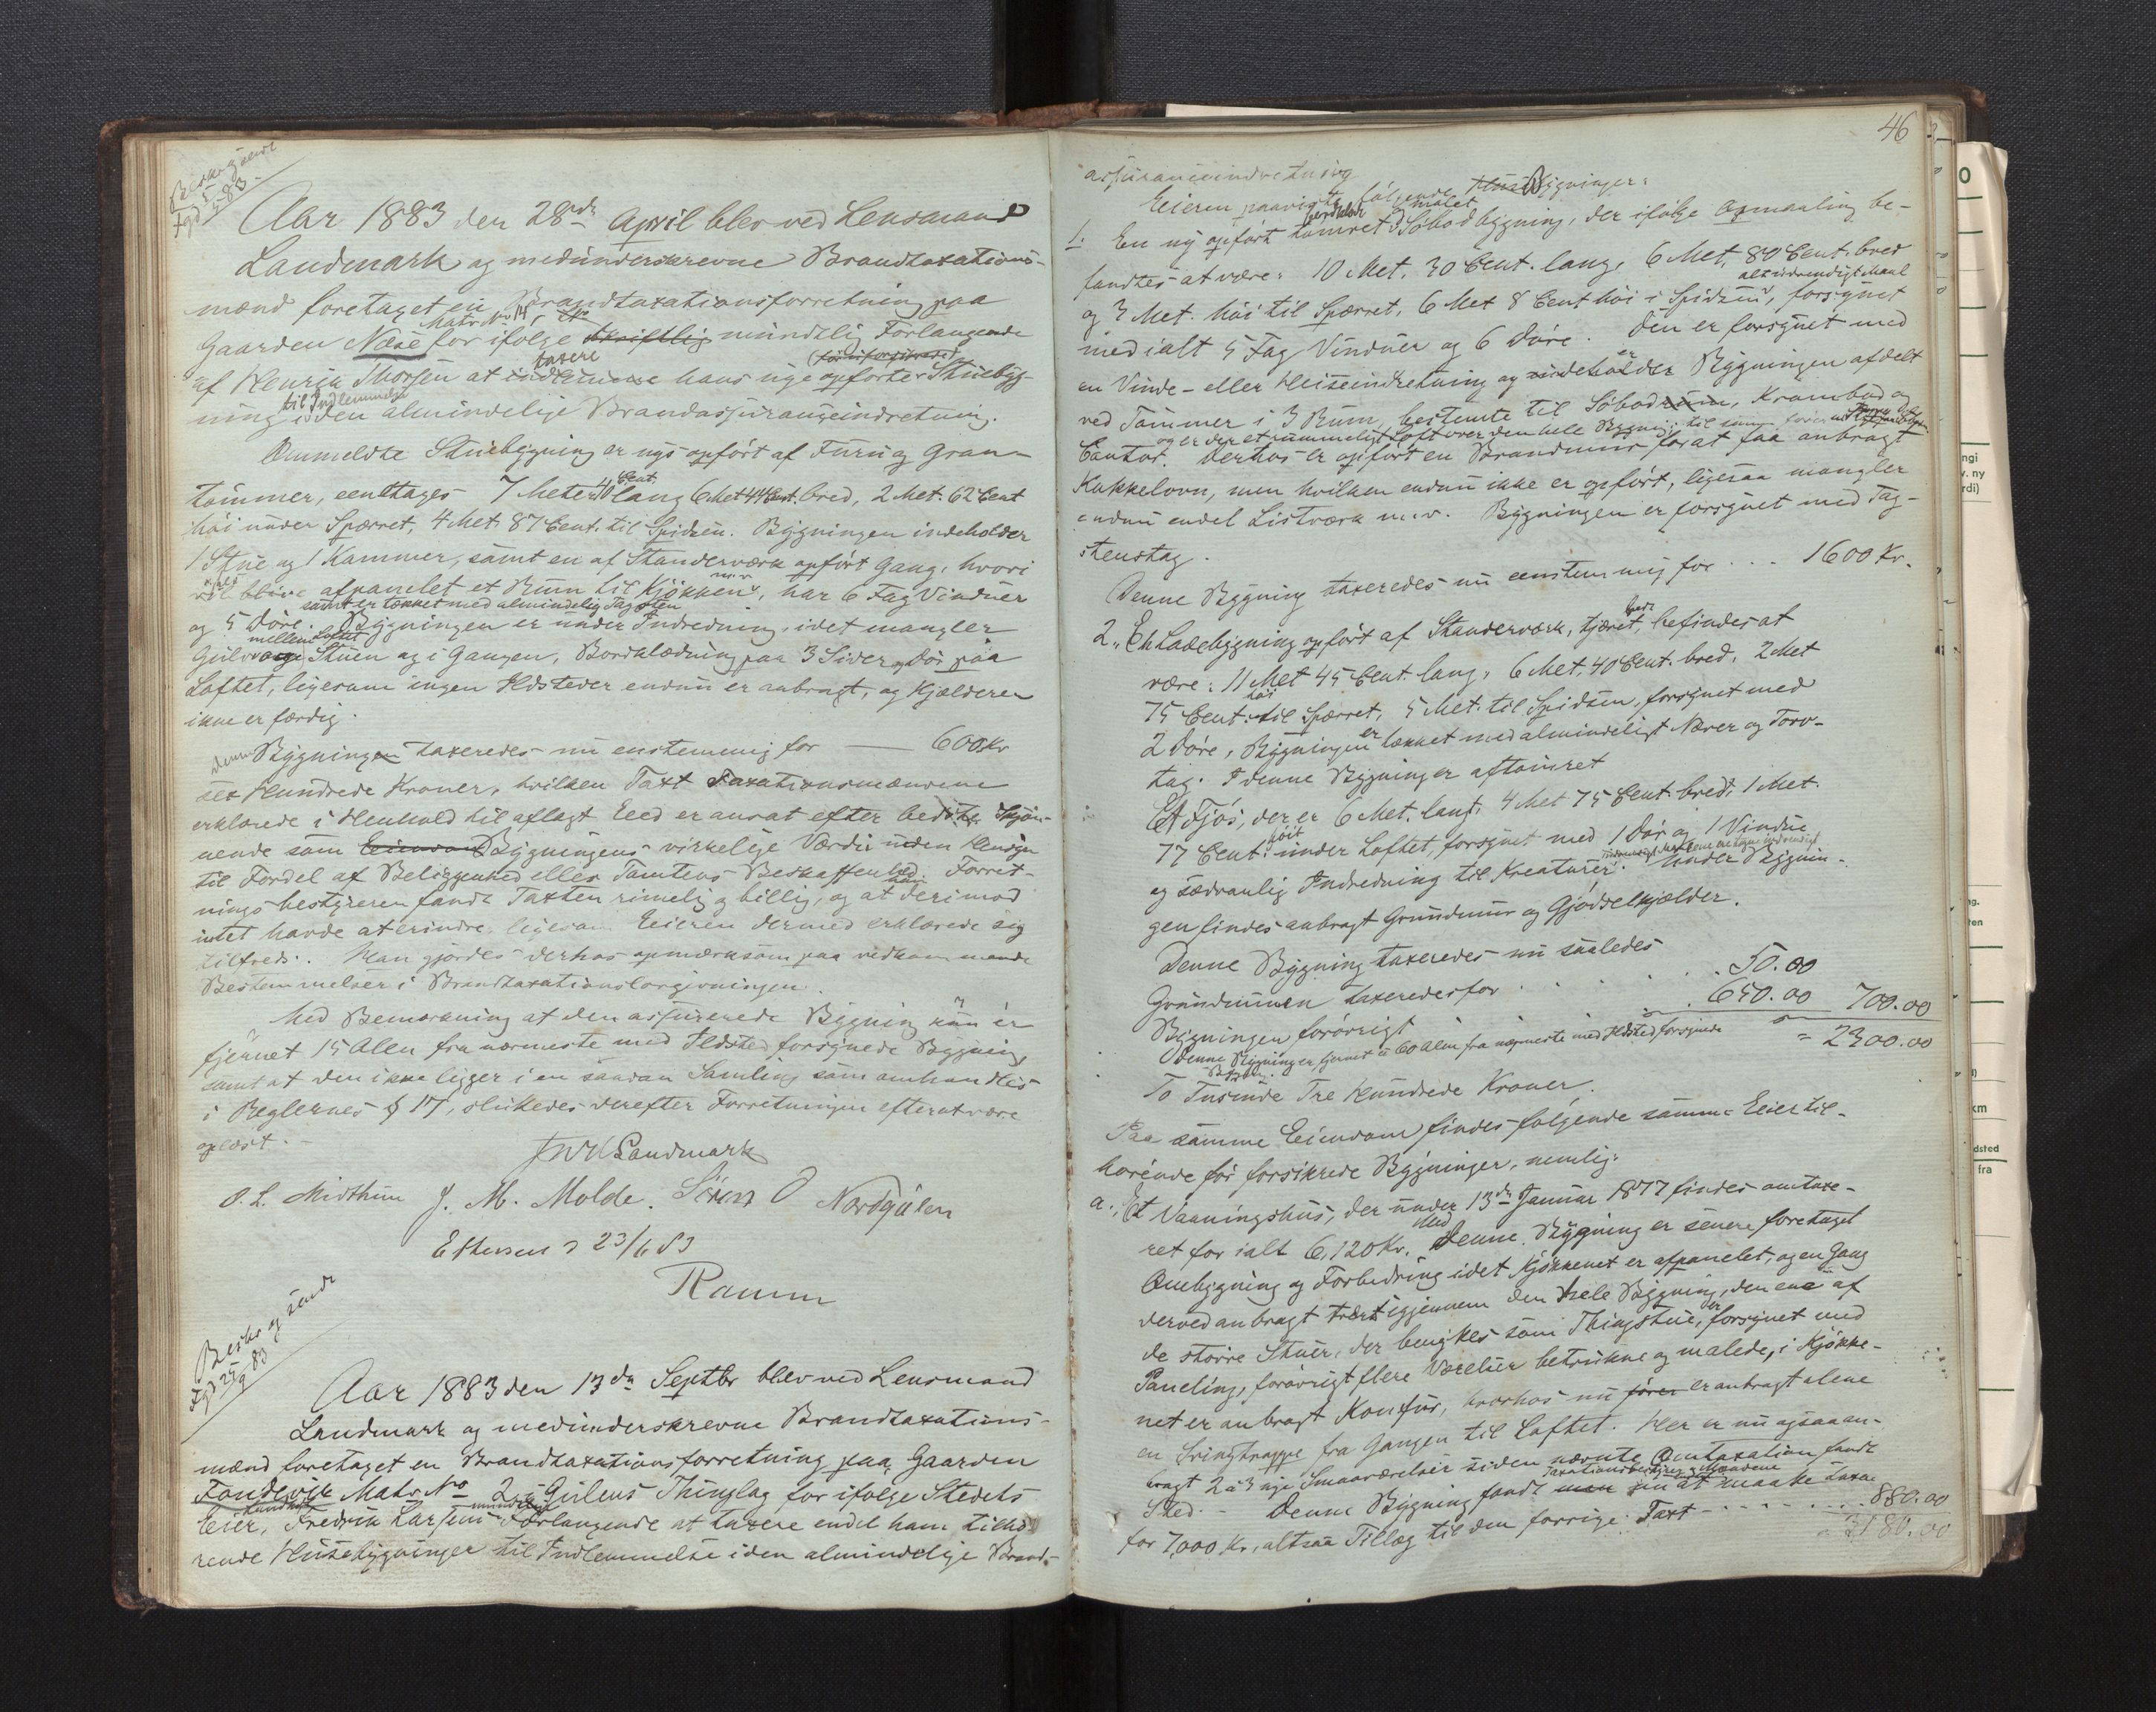 Beskr. gjenr
fgd 5/5 83.
Aar 1883 den 28de April blev ved Lensmand
Landmark og medunderskrevne Brandtaxations-
mænd foretaget en Brandtaxationsforretning paa
Matr. No 14,
Gaarden Nese for ifølge skriftlig mundtlig Forlangende
taxere
af Henrik Thorsen at indlemme hans nye opførte Stuebyg-
til Indlemmelse
ning i den almindelige Brandassuranceindretning.
Ommeldte Stuebygning er nys opført af Furu og Gran-
40 Cent.
tømmer, eenetages 7 Meter lang 6 Met 44 Cent. bred, 2 Met. 62 Cent
høi under Spærret, 4 Met. 87 Cent. til Spidsen. Bygningen indeholder
1 Stue og 1 Kammer, samt en af Standerværk opført Gang, hvori
m.v.
vil blive afpanelet et Rum til Kjøkken, har 6 Fag Vinduer
samt er tækket med almindelig Tagsten
og 5 Døre. Bygningen er under Indredning, idet mangler
mellem Loftet
Gulv Stuen og i Gangen, Bordklædning paa 3 Sider og Dør paa
Loftet, ligesom ingen Ildsteder endnu er anbragt, og Kjælderen
ikke er færdig.
Denne Bygningen taxeredes nu enstemmig for — 600 Kr
sex Hundrede Kroner, hvilken Taxt Taxationsmændene
erklærede i Henhold til aflagt Eed er ansat efter bedste Skjøn-
nende som Eiendom Bygningens virkelige Værdi uden Hensyn
til Fordel af Beliggenhed eller Tomtens Beskaffenhed. Forret-
nings bestyreren fandt Taxten rimelig og billig, og at derimod
intet havde at erindre, ligesom Eieren dermed erklærede sig
tilfreds. Han gjordes derhos opmærksom paa vedkommende
Bestemmelser i Brandtaxationslovgivningen.
Med Bemærkning at den assurerede Bygning kun er
fjernet 15 Alen fra nærmeste med Ildsted forsynede Bygning
samt at den ikke ligger i en saadan Samling som omhandles
i Reglernes § 17, sluttedes derefter Forretningen efter at være
oplæst. —
Landmark
O. L. Midthun J. M. Molde. Sören O Nordgulen
Efterseet d 23/6 83
Ramm
Beskr og sendt
fgd 25/9 83
Aar 1883 den 13de Septbr blev ved Lensmand
Landmark og medunderskrevne Brandtaxations-
mænd foretaget en Brandtaxationsforretning paa Gaarden
Fondevik Matr. No 2 i Gulens Thinglag for ifølge Stedets
Landhdl. mundtlig
Eier, Fredrik Larsens Forlangende at taxere endel ham tilhø-
rende Husebygninger til Indlemmelse i den almindelige Brand-
46
assuranceindretning
Eieren paaviste følgende Huse Bygninger:
bordklædt malet
1. En ny opført tømret Søbodbygning, der ifølge Opmaaling be-
fandtes at være: 10 Met. 30 Cent. lang, 6 Met. 80 Cent. bred
alt udvendigt Maal
og 3 Met. høi til Spærret, 6 Met 8 Cent høi i Spidsen, forsynet
med ialt 5 Fag Vinduer og 6 Døre. Den er forsynet med
en Vinde- eller Heiseindretning og er Bygningen afdelt
ved Tømmer i 3 Rum, bestemte til Søbodrum, Krambod og
og er der et rummeligt Loft over den hele Bygning, til som fører
Contor. Derhos er opført en Brandmur for at faa anbragt
Kakkelovn, men hvilken endnu ikke er opført, ligesaa mangler
endnu endel Listværk m.v. Bygningen er forsynet med Tag-
stenstag.
Denne Bygning taxeredes nu eenstemmig for . . . 1600 Kr.
2. En Ladebygning opført af Standerværk, tjæret, befindes at
være: 11 Met 45 Cent. lang, 6 Met. 40 Cent. bred, 2 Met
høi
75 Cent. til Spærret, 5 Met. til Spidsen, forsynet med
2 Døre, Bygningen er tækket med almindeligt Næver og Torv-
tag. I denne Bygning er aftømret
Et Fjøs, der er 6 Met. langt, 4 Met 75 Cent. bredt, 1 Met.
høit
77 Cent. under Loftet, forsynet med 1 Dør og 1 Vindue
og sædvanlig Indredning til Kreaturer. Under Bygnin-
gen findes anbragt Grundmur og Gjødselkjælder.
Denne Bygning taxeredes nu saaledes
Grundmuren taxeredes for . . . . . 50.00
Bygningen forøvrigt . . . 650.00 700.00
Denne Bygning er fjernet 60 Alen fra nærmeste med Ildsted forsynede = 2300.00
Bygn.
To Tusinde Tre Hundrede Kroner.
Paa samme Eiendom findes følgende samme Eier til-
hørende før forsikrede Bygninger, nemlig:
a., Et Vaaningshus, der under 13de Januar 1877 findes omtaxe-
Med
ret for ialt 6,120 Kr. Denne Bygning er senere foretaget
Ombygning og Forbedring idet Kjøkkenet er afpanelet, og en Gang
derved anbragt tvert igjennem den hele Bygning, den ene af
de større Stuer, der benyttes som Thingstue, er forsynet med
Paneling, forøvrigt flere Værelser betrukne og malede, i Kjøkke-
net er anbragt Komfur, hvorhos nu fører er anbragt alene
en Svingtrappe fra Gangen til Loftet. Her er nu ogsaa an-
bragt 2 a 3 nye Smaaværelser siden nævnte Omtaxation fandt
Taxationsbestyrer og Mændene
Sted. Denne Bygning fandt man at maatte taxe
for 7,000 Kr., altsaa Tillæg til den forrige Taxt - - - - - 880.00
3180.00